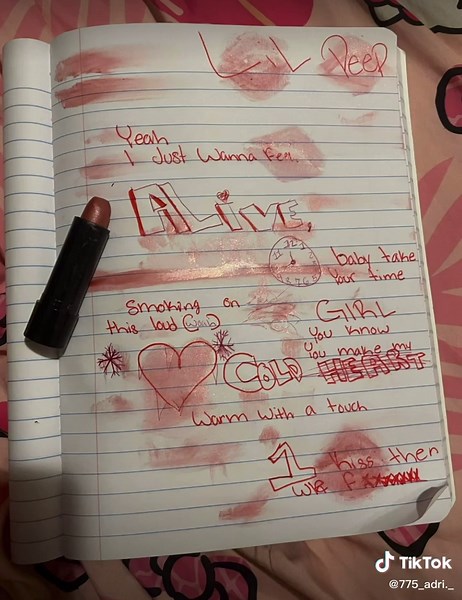 LiL Peep
Yeah
I Just Wanna Feel
ALiVE,
12 3 6 9
baby take
Your time
Smoking on
this loud (woah)
GIRL
You know
You make my
COLD HEART
Warm with a touch
1 kiss then
we f
TikTok
@775_adri._